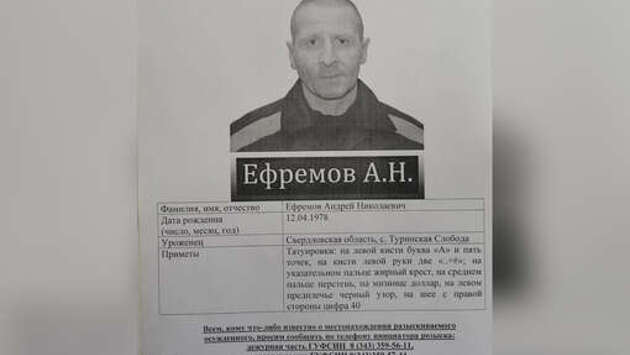 Ефремов А.Н.
Фамилия, имя, отчество Ефремов Андрей Николаевич
Дата рождения 12.04.1978
(число, месяц, год)
Уроженец Свердловская область, с. Туринская Слобода
Приметы Татуировки: на левой кисти буква «А» и пять
точек, на кисти левой руки две на
указательном пальце жирный крест, на среднем
пальце перстень, на мизинце доллар, на левом
предплечье черный узор, на шее с правой
стороны цифра 40
Всем, кому что-либо известно о местонахождении разыскиваемого
осужденного, просим сообщать по телефону инициатора розыска:
дежурная часть ГУФСИН 8 (343) 359-56-11,